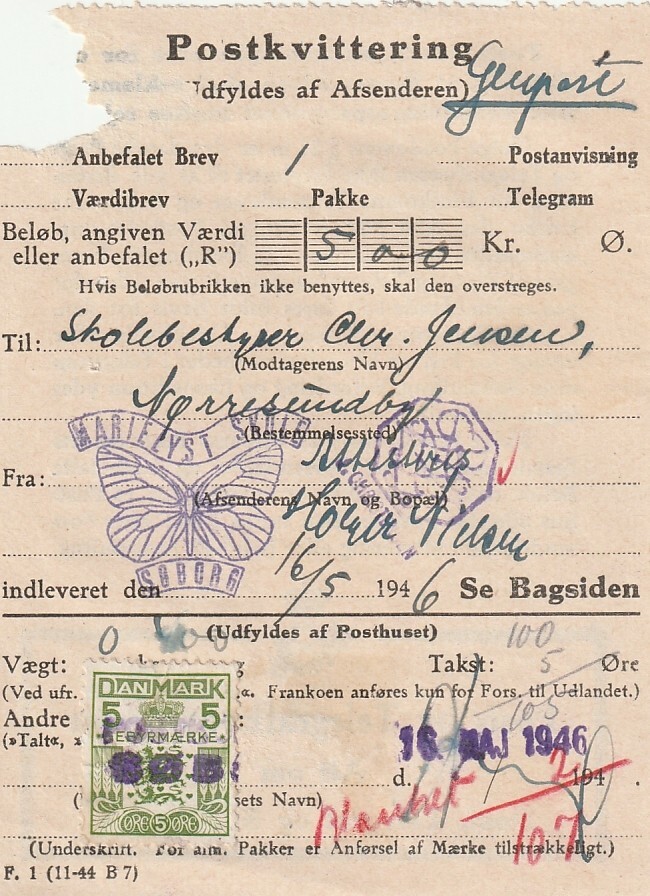 Postkvittering
dfyldes af Afsenderen) Genpart
Anbefalet Brev 1 Postanvisning
Værdibrev Pakke Telegram
Beløb, angiven Værdi
eller anbefalet („R”) 500 Kr. Ø.
Hvis Beløbrubrikken ikke benyttes, skal den overstreges.
Til: Skolebestyrer Chr. Jensen,
(Modtagerens Navn)
Nørresundby
MARIELYST SKOLE
(Bestemmelsessted)
Fra:
(Afsenderens Navn og Bopæl)
Holger Nielsen
SØBORG
indleveret den 16/5 1946 Se Bagsiden
(Udfyldes af Posthuset)
Vægt: 0 Takst: 100 5 Øre
(Ved ufr. Frankoen anføres kun for Fors. til Udlandet.)
105
Andre
(»Talt«,
DANMARK
5 5
GEBYRMÆRKE
ØRE 5 ØRE
16 MAJ 1946
d. 194 .
2
sets Navn)
107
(Underskrift. For alm. Pakker er Anførsel af Mærke tilstrækkeligt.)
F. 1 (11-44 B 7)